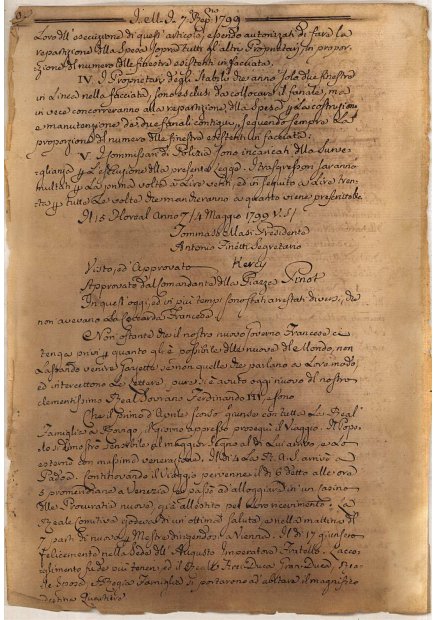 Loro dell'esecuzione di questi articoli, essendo autorizzati di fare la
repartizione della Spesa sopra tutti gl'altri Proprietarj, in propor-
zione del numero delle finestre esistenti in facciata.
IV. I Proprietarj degli Stabili che anno solo due finestre
in Linea nella facciata, sono esclusi da collocare il fanale, ma
in vece concorreranno alla repartizione della Spesa p la costruzione
e manutenzione dei due fanali contigui, seguendo sempre la
proporzione del numero delle finestre esistenti in facciata.
V. I Commissarj di Polizia sono incaricati della Surve-
glianza p l'esecuzione della presente Legge. I trasgressori saranno
multati p la prima volta à Lire venti, ed in seguito à Lire tren-
ta p tutte le volte che mancheranno a quanto viene prescritto
Il 15 Floreal Anno 7/4 Maggio 1799 V.S/
Tommaso Masi Presidente
Antonio Finetti Segretario
Visto, ed Approvato Kercy
Approvato dal Comandante della Piazza Pinot
In quest'oggi, ed in più tempi sono stati arrestati diversi, che
non avevano la Coccarda Francese.
Non ostante che il nostro nuovo Governo Francese ci
tenga privi p quanto gli è possibile delle nuove del Mondo, non
lasciando venire Gazzette se non quelle che parlano a Loro modo,
ed intercettono le Lettere, pure si è avuto oggi nuova del nostro
clementissimo Real Sovrano Ferdinando III, e sono
Che il primo d'Aprile scorso giunse con tutta la Real
Famiglia a il giorno appresso proseguì il Viaggio. Il Popo-
lo dimostrò sensibile al maggior segno al di Lui arrivo, e lo
esternò con massima venerazione. Il dì 4 la R. A. S. arrivò a
Padova. Continovando il Viaggio pervenne il dì 6 detto alle ore
5 pomeridiane a Venezia ed passò ad alloggiare in un casino
delle Procuratie nuove, già allestito per Loro ricevimento. La
Reale Comitiva godeva di un'ottima salute, e nella mattina del
7 partì di nuovo p Mestre dirigendosi a Vienna. Il dì 17 giunsero
felicemente nella sede dell'Augusto Imperatore Fratello. L'acco-
glimento fu de più teneri, ed il Real Arci-Duca Gran-Duca, Rea-
le Sposa, e Regia Famiglia si portarono ad abitare il magnifico
Quartiere